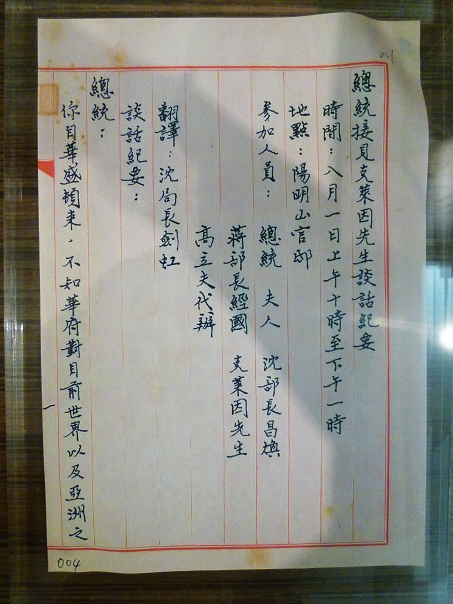 總統接見克萊因先生談話紀要
時間：八月一日上午十時至下午一時
地點：陽明山官邸
參加人員：總統 夫人 沈部長昌煥
蔣部長經國 克萊因先生
高立夫代辦
翻譯：沈局長劍虹
談話紀要：
總統：
你自華盛頓來，不知華府對目前世界以及亞洲之
一
004